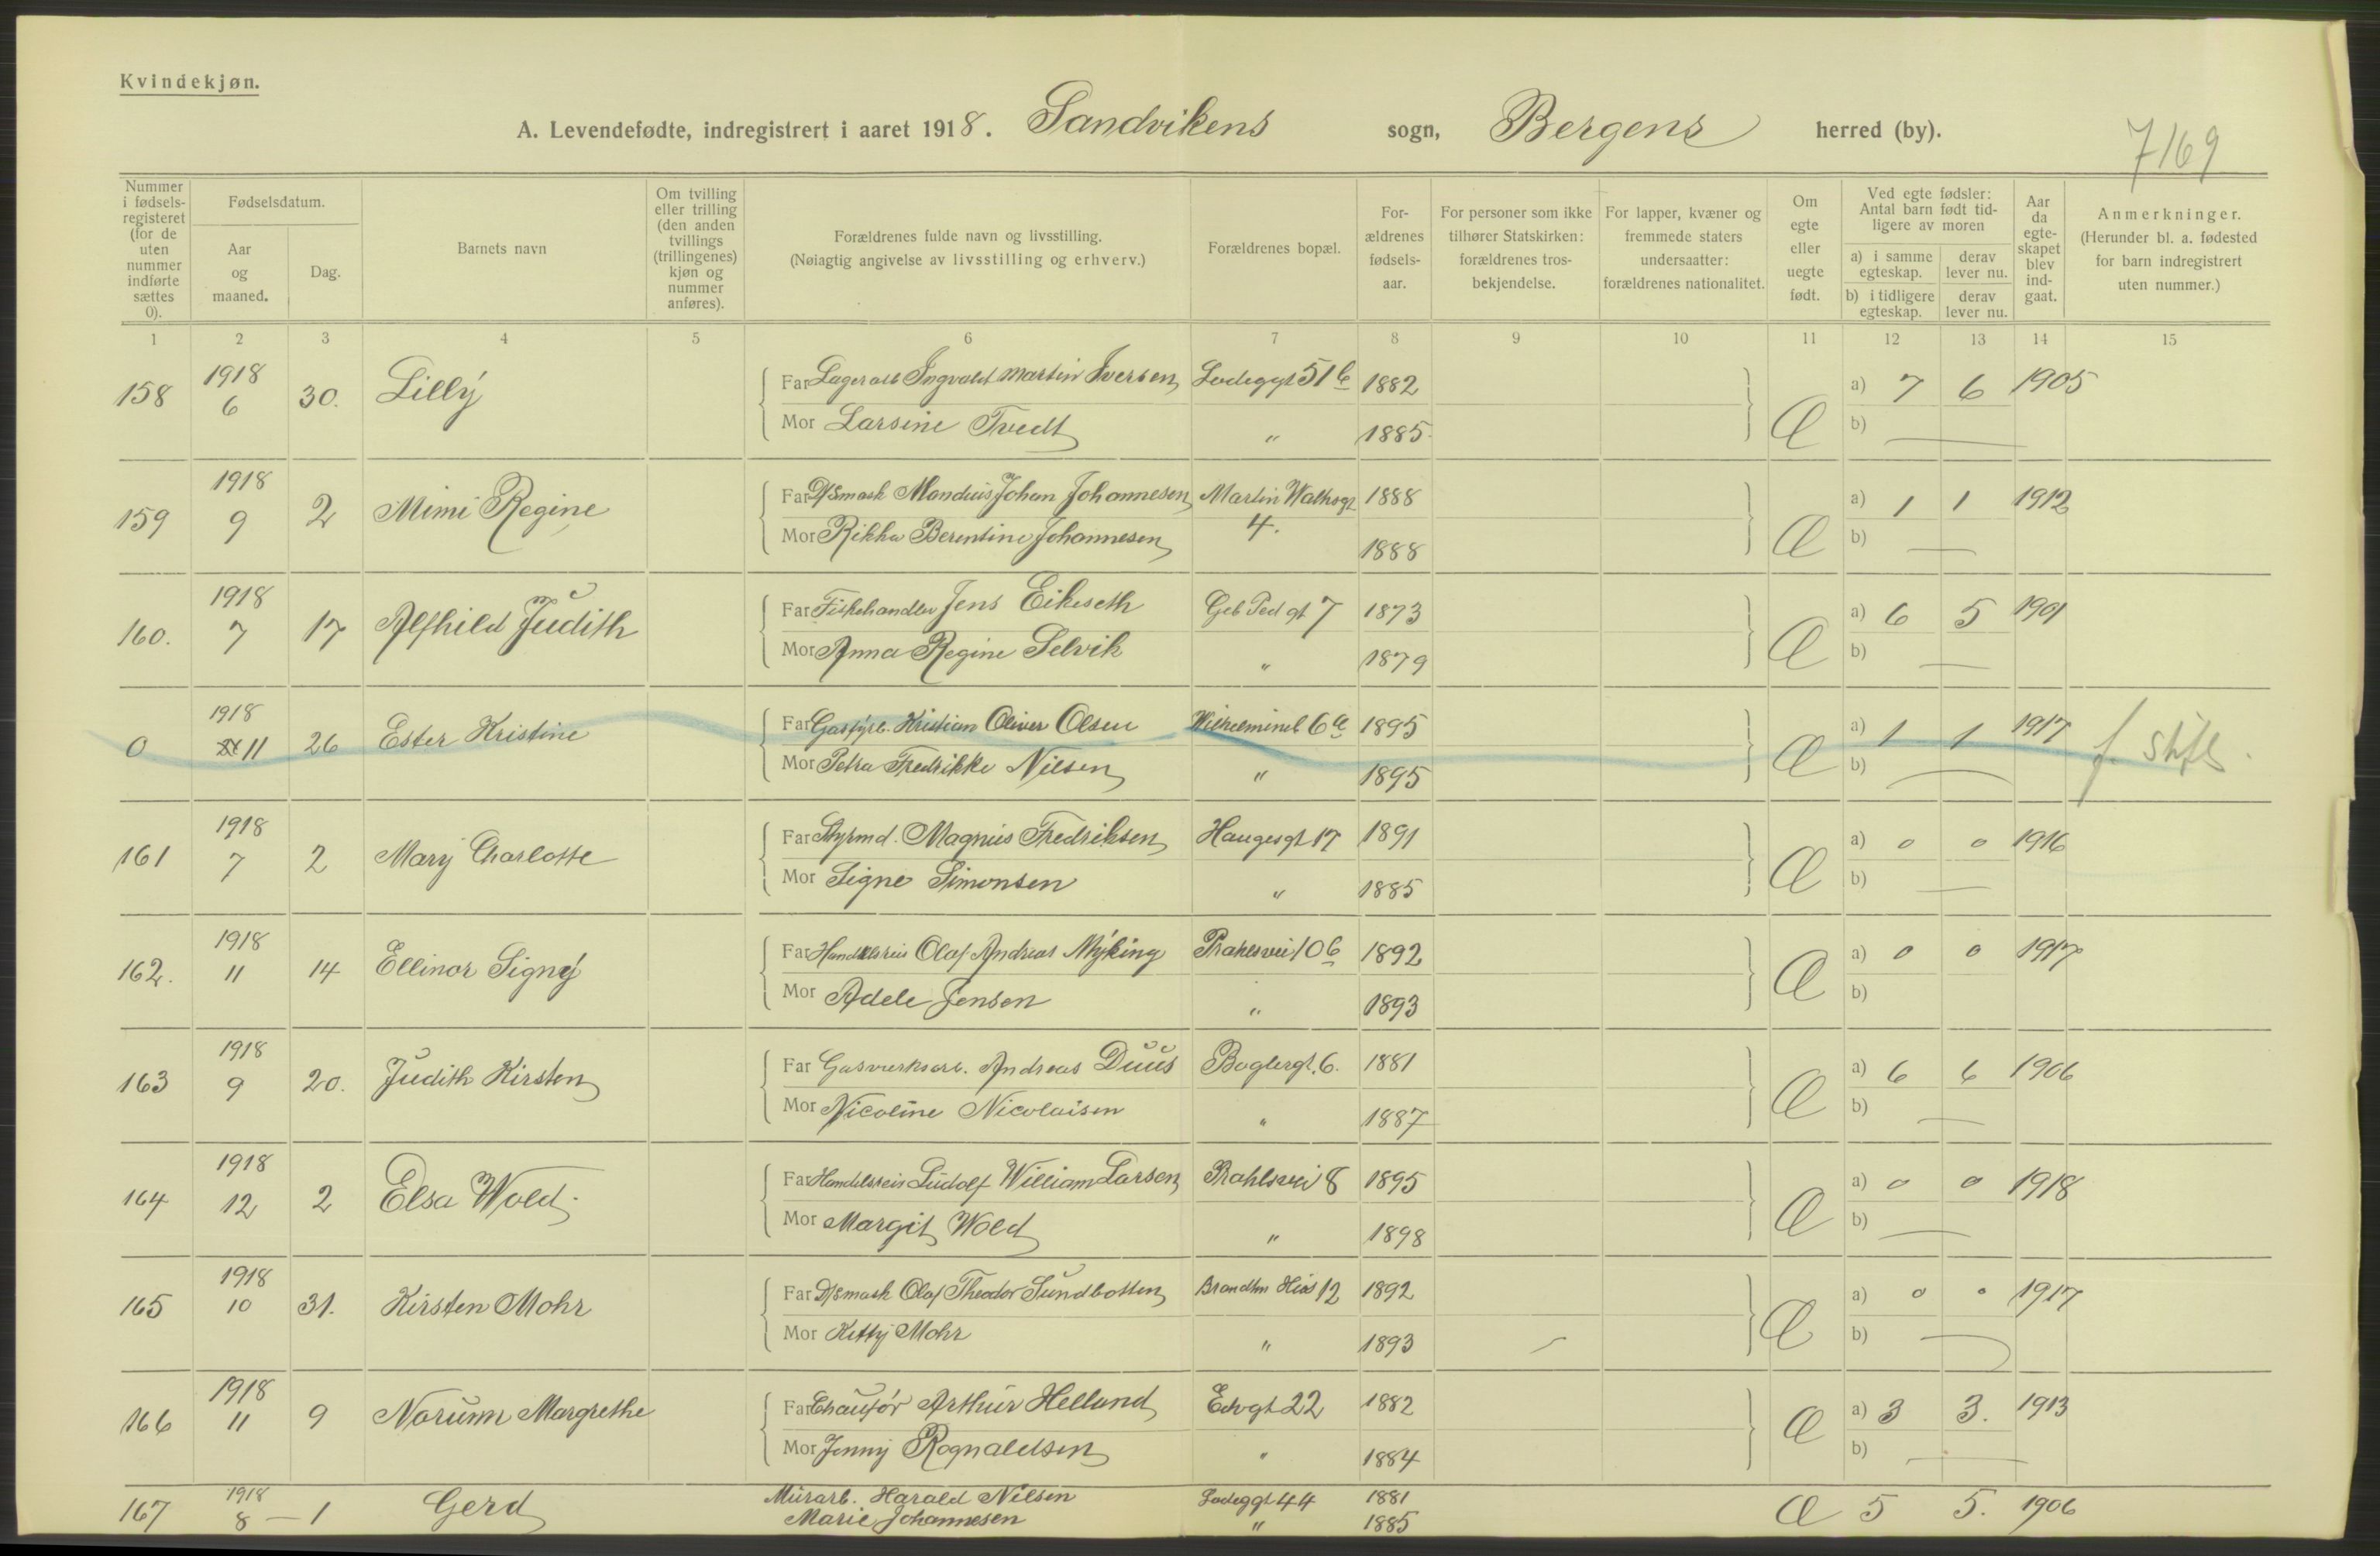 Kvindekjøn.
A. Levendefødte, indregistrert i aaret 1918. Sandvikens sogn, Bergens herred (by).
7169
Nummer i fødselsregisteret (for de uten nummer indførte sættes 0).
Fødselsdatum.
Aar og maaned.
Dag.
Barnets navn
Om tvilling eller trilling (den anden tvillings (trillingenes) kjøn og nummer anføres).
Forældrenes fulde navn og livsstilling.
(Nøiagtig angivelse av livsstilling og erhverv.)
Forældrenes bopæl.
Forældrenes fødselsaar.
For personer som ikke tilhører Statskirken: forældrenes trosbekjendelse.
For lapper, kvæner og fremmede staters undersaatter: forældrenes nationalitet.
Om egte eller uegte født.
Ved egte fødsler: Antal barn født tidligere av moren
a) i samme egteskap. derav lever nu.
b) i tidligere egteskap. derav lever nu.
Aar da egteskapet blev indgaat.
Anmerkninger.
(Herunder bl. a. fødested for barn indregistrert uten nummer.)
1 2 3 4 5 6 7 8 9 10 11 12 13 14 15
158 1918 6 30. Lilly Far Lagerarb Ingvald Martin Iversen Ladeggt 51 b 1882 Æ a) 7 6 1905
Mor Larsine Tvedt " 1885. b) —
159 1918 9 2 Mimi Regine Far D/Smask Mandius Johan Johannesen Martin Walhsgt 1888 Æ a) 1 1 1912
Mor Rikka Berentine Johannesen 4. 1888 b) —
160. 1918 7 17 Alfhild Judith Far Fiskehandler Jens Eikeseth Geb Ped gt 7 1873 Æ a) 6 5 1901
Mor Anna Regine Selvik " 1879 b) —
0 1918 11 26 Ester Kristine Far Gasfyrb. Kristian Oliver Olsen Wilhelmineb 6 a 1895 Æ a) 1 1 1917 f. Stift.
Mor Petra Fredrikke Nilsen " 1895 b) —
161 1918 7 2 Mary Charlotte Far Styrmd. Magnus Fredriksen Haugesgt 17 1891 Æ a) 0 0 1916
Mor Signe Simonsen " 1885 b) —
162. 1918 11 14 Ellinor Signy Far Handelsreis Olaf Andreas Myking Prahlsvei 10 b 1892 Æ a) 0 0 1917
Mor Adele Jensen " 1893 b)
163 1918 9 20. Judith Kirsten Far Gasverksarb. Andreas Duus Baglergt. 6. 1881 Æ a) 6 6 1906
Mor Nicoline Nicolaisen " 1887 b) —
164 1918 12 2 Elsa Wold. Far Handelsreis Ludolf William Larsen Prahlsvei 8 1895 Æ a) 0 0 1918
Mor Margit Wold " 1898 b) —
165 1918 10 31. Kirsten Mohr Far D/Smask Olaf Theodor Sundbotten Brandtm Hies 12 1892 Æ a) 0 0 1917
Mor Ketty Mohr " 1893 b) —
166 1918 11 9 Norunn Margrethe Far Chaufør Arthur Helland Edvgt 22 1882 Æ a) 3 3. 1913
Mor Jenny Rognaldsen " 1884 b) —
167 1918 8 — 1 Gerd Murarb. Harald Nilsen Ladeggt 44 1881 Æ 5 5. 1906
Marie Johannesen " 1885